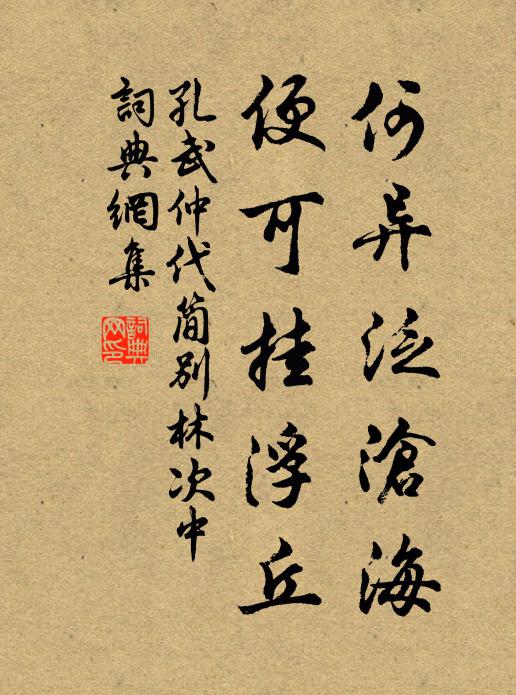 何异泛滄海
便可挂浮丘
孔武仲代简别林次中
詞典網集
詞典网印